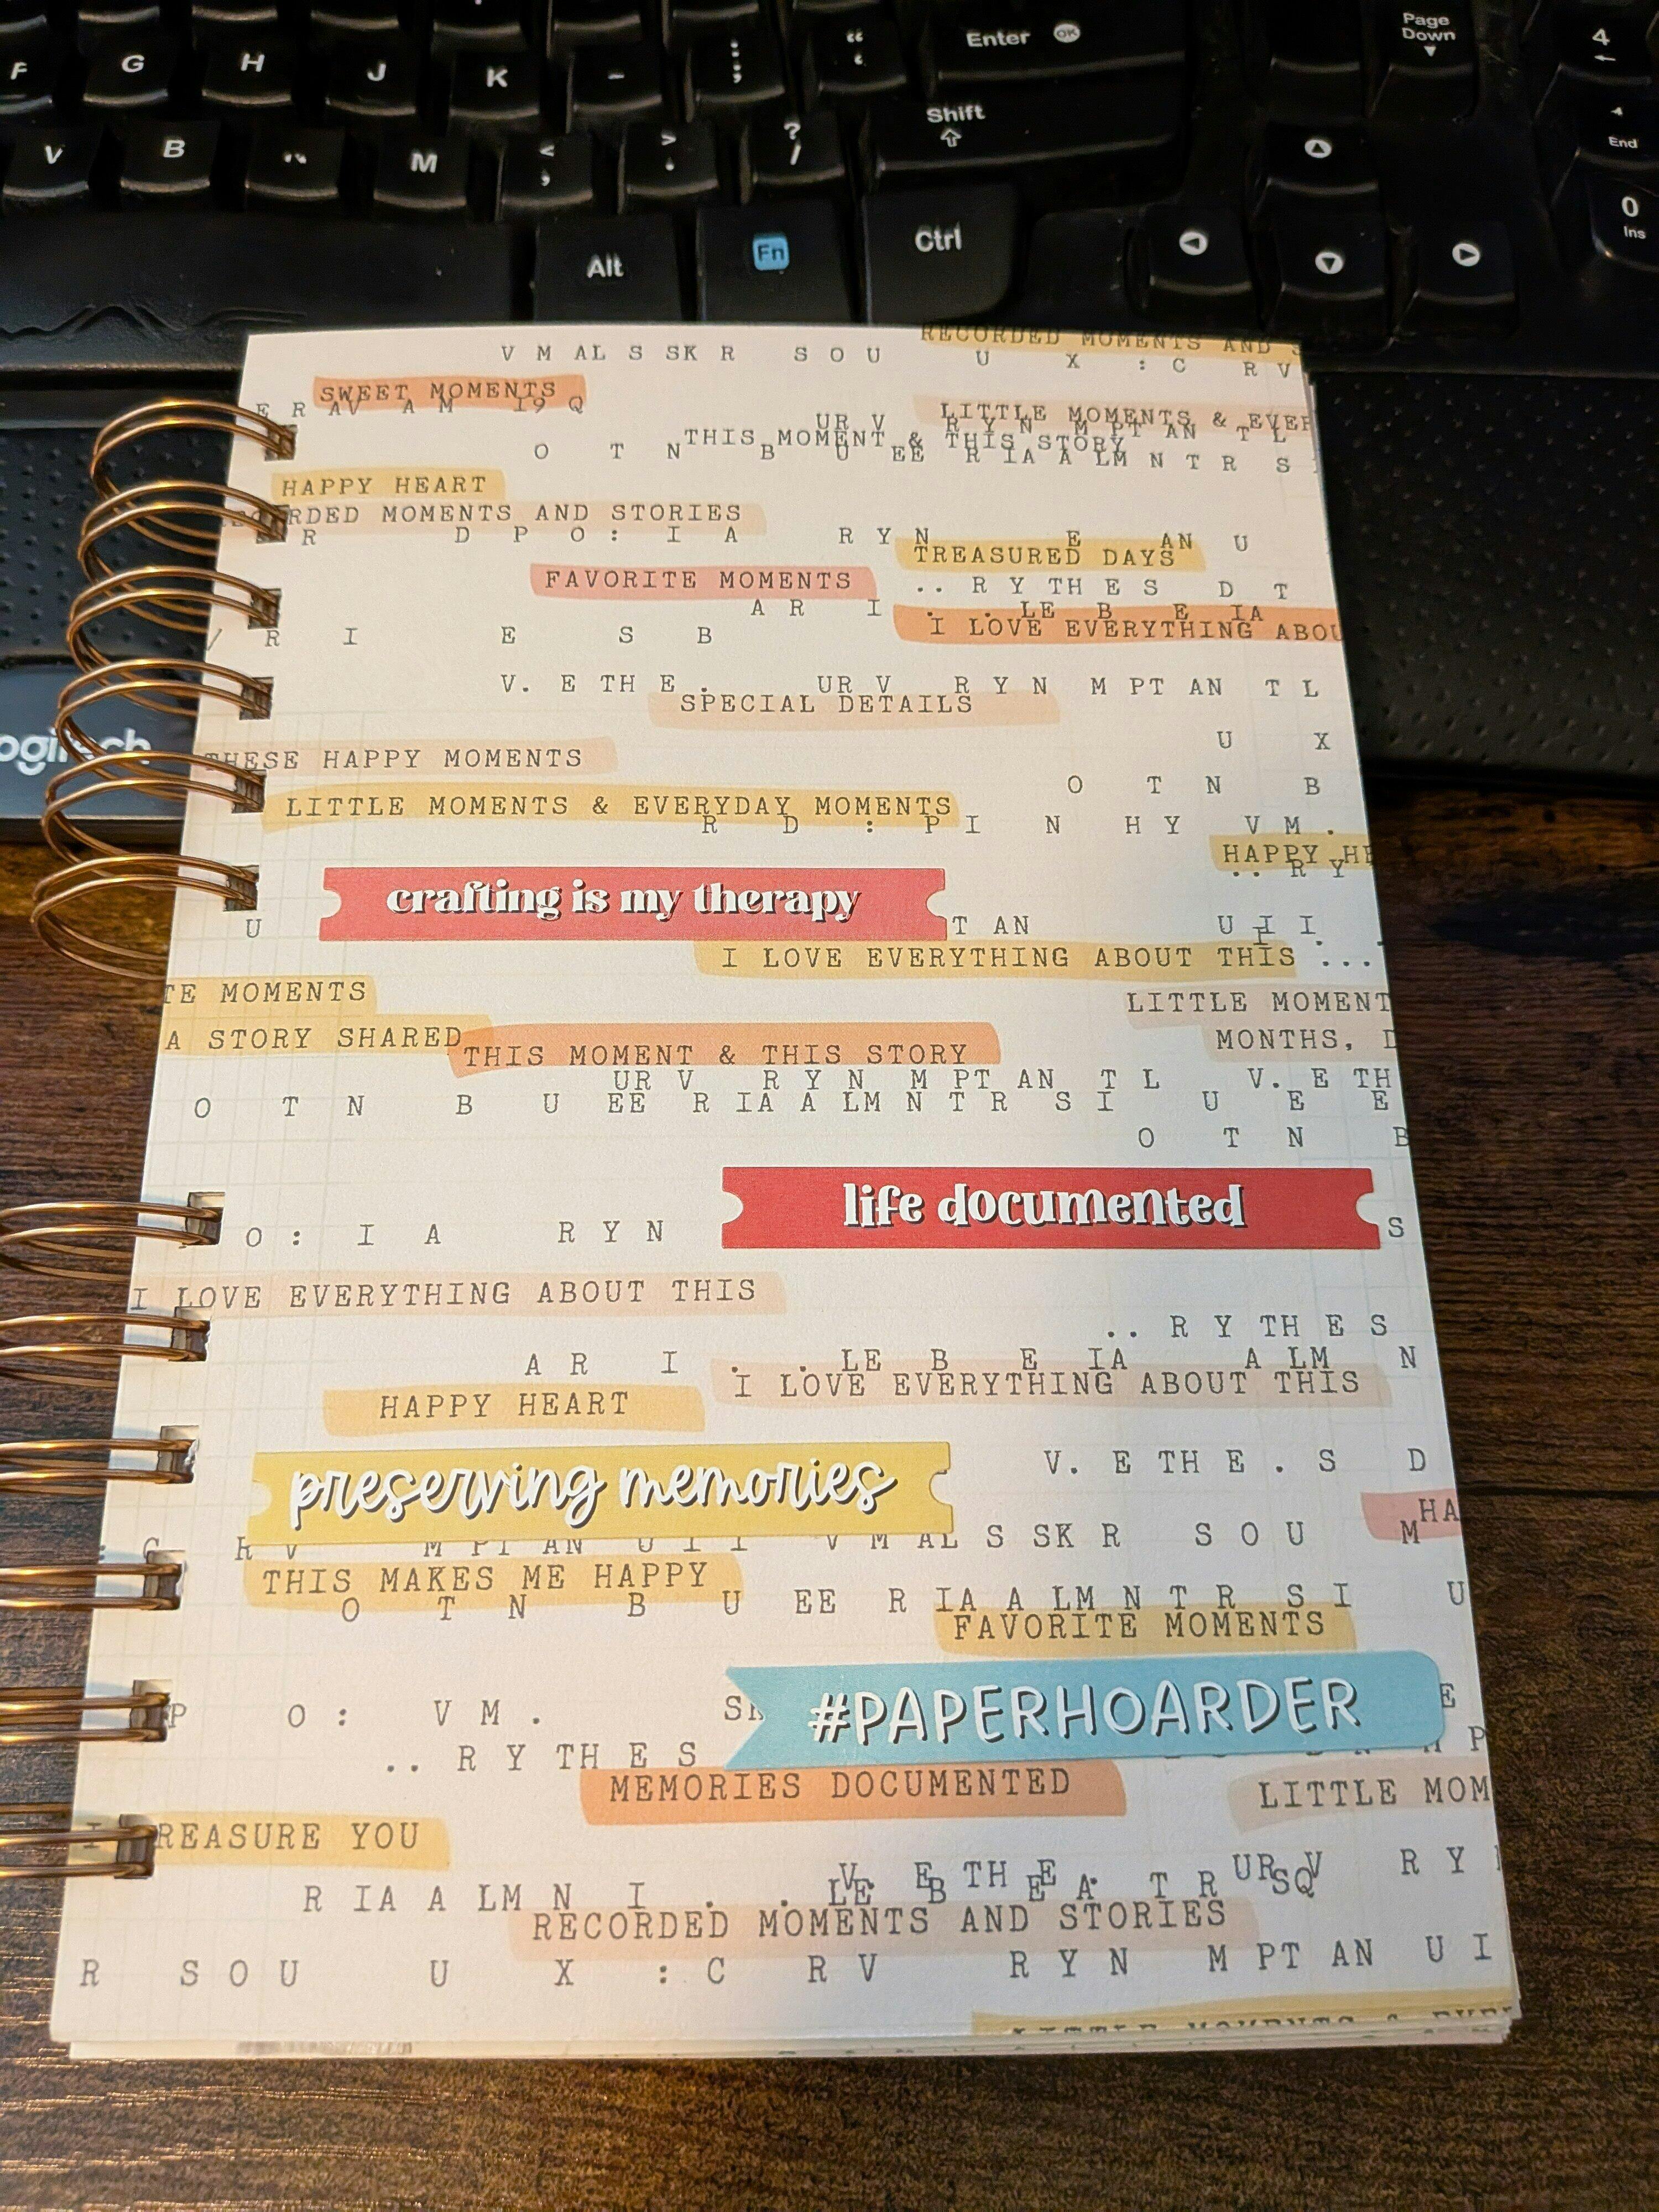 Page
Down
4
F G H J K - : ; “ ‘ Enter OK
Shift
End
V B M < , > . ? /
0
Ins
Alt Fn Ctrl
RECORDED MOMENTS AND S
V M AL S SK R S O U U X : C R V
SWEET MOMENTS
E R AV A M 19 Q
LITTLE MOMENTS & EVER
UR V R Y N M PT AN T L
THIS MOMENT & THIS STORY
O T N B U EE R IA A LM N T R S
HAPPY HEART
RDED MOMENTS AND STORIES
R D P O : I A R Y N E AN U
TREASURED DAYS
FAVORITE MOMENTS
.. R Y TH E S D T
A R I . . LE B E IA
I LOVE EVERYTHING ABOU
R I E S B
V. E TH E . UR V R Y N M PT AN T L
SPECIAL DETAILS
U X
logitech
THESE HAPPY MOMENTS
O T N B
LITTLE MOMENTS & EVERYDAY MOMENTS
R D : P I N H Y V M .
HAPPY HE
.. R Y
crafting is my therapy
U T AN U I I
I LOVE EVERYTHING ABOUT THIS ...
TE MOMENTS
LITTLE MOMENT
A STORY SHARED
MONTHS, D
THIS MOMENT & THIS STORY
UR V R Y N M PT AN T L V. E TH
O T N B U EE R IA A LM N T R S I U E E
O T N B
life documented
O : I A R Y N S
I LOVE EVERYTHING ABOUT THIS
.. R Y TH E S
A R I . . LE B E IA A LM N
I LOVE EVERYTHING ABOUT THIS
HAPPY HEART
V. E TH E . S D
preserving memories
HA
: C R V M PT AN U I I V M AL S SK R S O U M
THIS MAKES ME HAPPY
O T N B U EE R IA A LM N T R S I U
FAVORITE MOMENTS
#PAPERHOARDER
P O : V M . E
.. R Y TH E S P
MEMORIES DOCUMENTED
LITTLE MOM
I REASURE YOU
V. E TH E . UR V R Y
R IA A LM N I . . LE B E A T R SQ
RECORDED MOMENTS AND STORIES
R S O U U X : C R V R Y N M PT AN U I